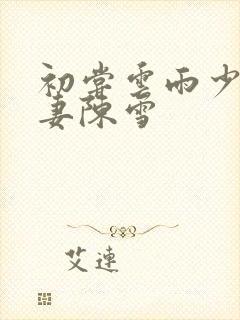 初尝云雨少
妻陈雪
艾连